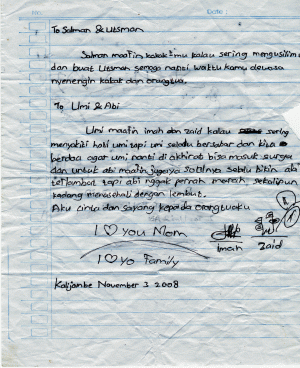 No: Date:
To Salman & Utsman
Salman maafin kakak²mu kalau sering mengusilimu
dan buat Utsman semoga nanti waktu kamu dewasa
nyenengin kakak dan orangtua.
To Umi & Abi
Umi maafin imah dan zaid kalau sering
menyakiti hati umi tapi umi selalu bersabar dan bisa
berdoa agar umi nanti di akhirat bisa masuk surga
dan untuk abi maafin juga ya soalnya selalu bikin abi
terlambat tapi abi nggak pernah marah sekalipun
kadang menasehati dengan lembut.
Aku cinta dan sayang kepada orangtuaku
I ♡ you Mom
I ♡ yo Family
Imah Zaid
Kalijambe November 3 2008